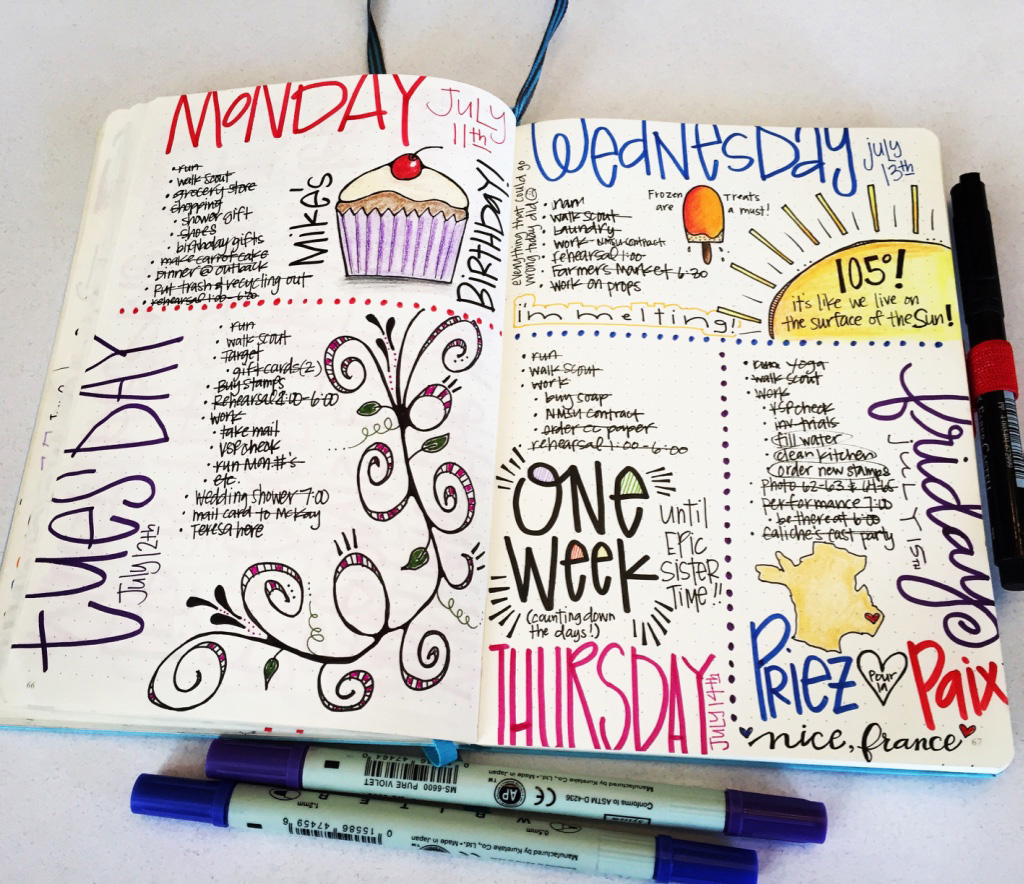 MONDAY
JULY
11th
• run
• walk scout
• grocery store
• shopping
• shower gift
• shoes
• birthday gifts
• make carrot cake
• Dinner @ outback
• Put trash & recycling out
• rehearsal 1:00-6:00
Mike's
BIRTHDAY!
TUESDAY
July 12th
• run
• walk scout
• Target
• gift cards (2)
• Buy stamps
• Rehearsal 2:00-6:00
• work
• take mail
• VSP check
• run Mon #'s
• etc.
• Wedding shower 7:00
• mail card to McKay
• Teresa here
66
WEDNESDAY
july
13th
everything that could go
wrong today did
• walk scout
• Laundry
• work - NMSU contract
• rehearsal 1:00
• Farmer's Market 6:30
• work on props
Frozen Treats
are a must!
105°!
it's like we live on
the surface of the Sun!
i'm melting!
• run
• walk scout
• work
• buy soap
• NMSU contract
• order cc paper
• rehearsal 1:00-6:00
ONE
week
until
EPIC
SISTER
TIME!!
(counting down
the days!)
THURSDAY
JULY 14th
• run yoga
• walk scout
• work
• VSP check
• inv trials
• fill water
• clean kitchen
• order new stamps
• photo 62-63 &
• performance 7:00
• be there at 6:00
• Caliche's cast party
friday
JULY 15th
Priez
Pour
la
Paix
nice, france
67
MS-6600 PURE VIOLET
47464 0
Manufactured by Kuretake Co., Ltd. • Made in Japan
AP
CE
Conforms to ASTM D-4236
1.2mm
0 15586 47459 6
Manufactured by Kuretake Co., Ltd. • Made in Japan
0.5mm